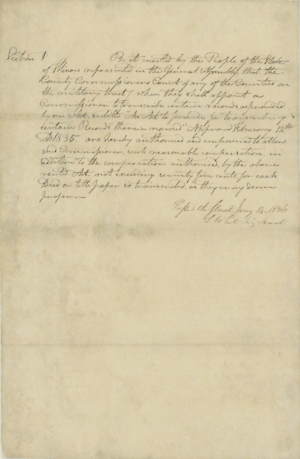 Section 1 Be it enacted by the People of the State
of Illinois represented in the General Assembly that the
County Commissioners Court of any of the Counties on
the military tract, when they shall appoint a
Commissioner to transcribe certain records as provided
by an Act entitled An Act to provide for transcribing
certain Records therein named Approved February 12th
AD 1835. are hereby authorised and empowered to allow
said Commissioner, such reasonable compensation in
addition to the compensation authorised by the above
recited Act not exceeding twenty five cents for each
Deed or title paper so transcribed as they may deem
proper
Jany 14, 1836